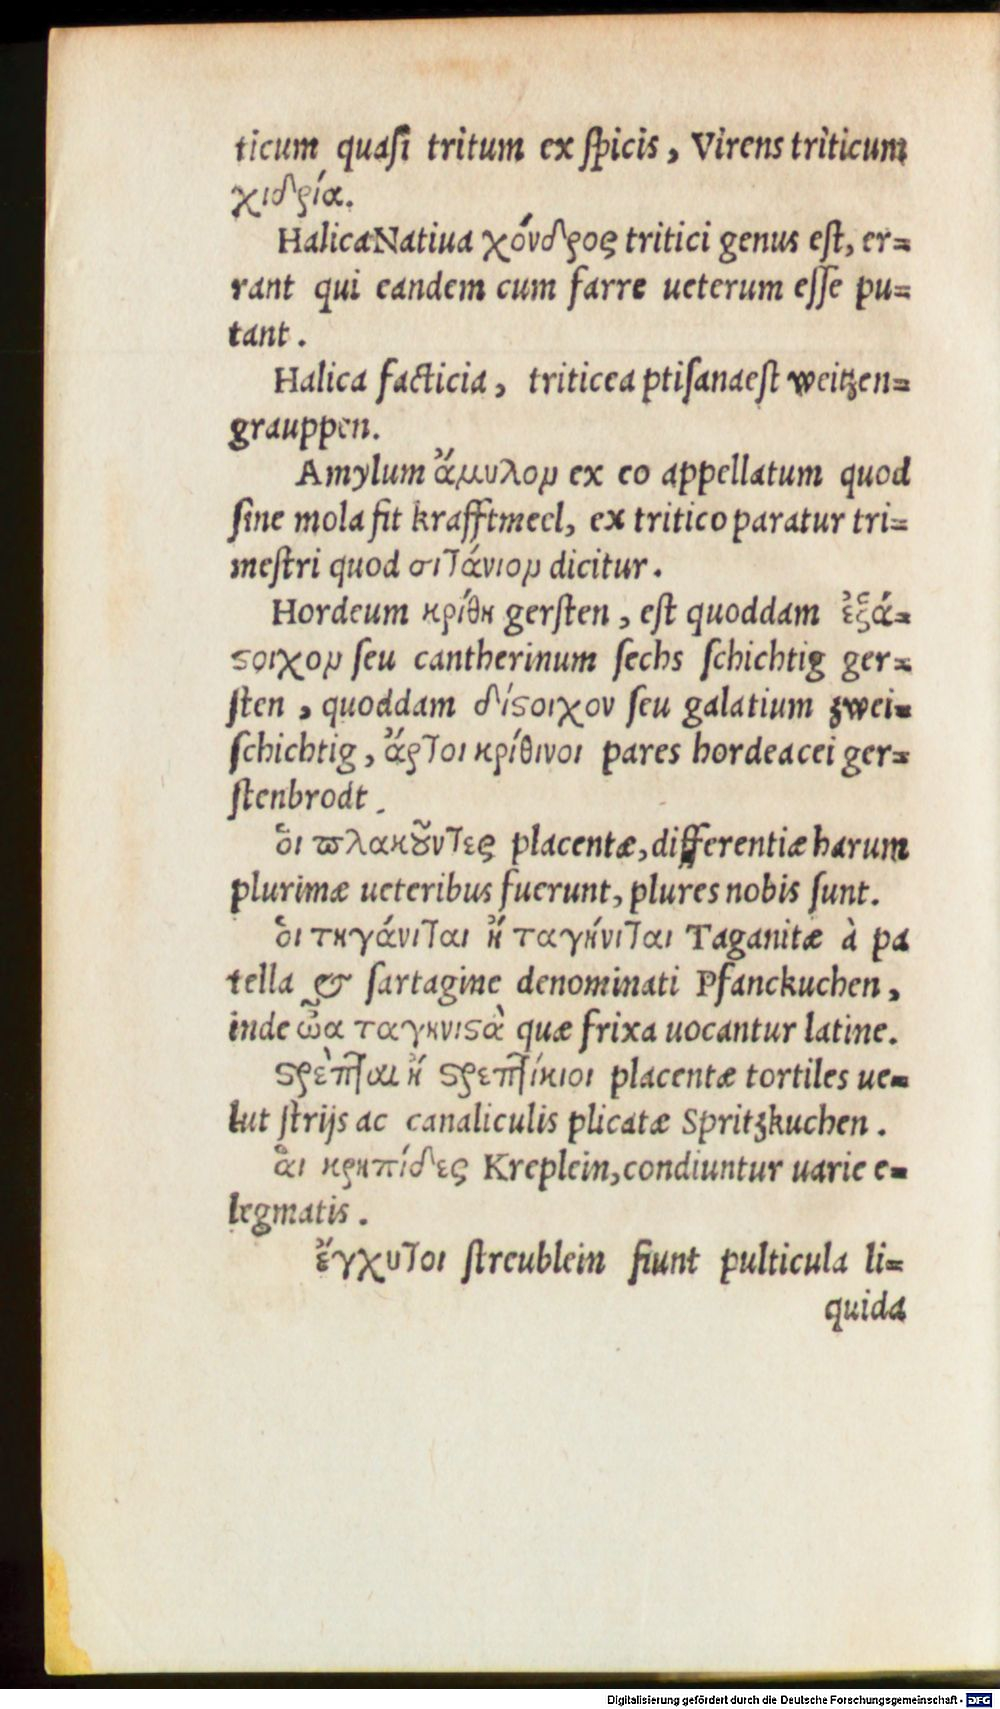 ticum quaſi tritum ex ſpicis, Virens triticum
χιδρία.
Halica Natiua χόνδρος tritici genus eſt, er=
rant qui eandem cum farre ueterum eſſe pu=
tant.
Halica facticia, triticea ptiſana eſt weitzen=
grauppen.
Amylum ἄμυλον ex eo appellatum quod
ſine mola fit krafftmeel, ex tritico paratur tri=
meſtri quod σιτάνιον dicitur.
Hordeum κρίθη gerſten, eſt quoddam ἑξά=
ϛοιχον ſeu cantherinum ſechs ſchichtig ger=
ſten, quoddam δίϛοιχον ſeu galatium zwei=
ſchichtig, ἄρτοι κρίθινοι pares hordeacei ger=
ſtenbrodt.
ὃι ϖλακȣ͂ντες placentæ, differentiæ harum
plurimæ ueteribus fuerunt, plures nobis ſunt.
ὃι τηγάνιται ἤ ταγήνιται Taganitæ à pa
tella & ſartagine denominati Pfanckuchen,
inde ὦα ταγηνιϛὰ quæ frixa uocantur latine.
ϛρὲπται ἤ ϛρεπτίκιοι placentæ tortiles ue=
lut ſtrijs ac canaliculis plicatæ Spritzkuchen.
ἃι κρηπίδες Kreplein, condiuntur uarie e=
legmatis.
ἔγχυτοι ſtreublein fiunt pulticula li=
quida
Digitalisierung gefördert durch die Deutsche Forschungsgemeinschaft - DFG